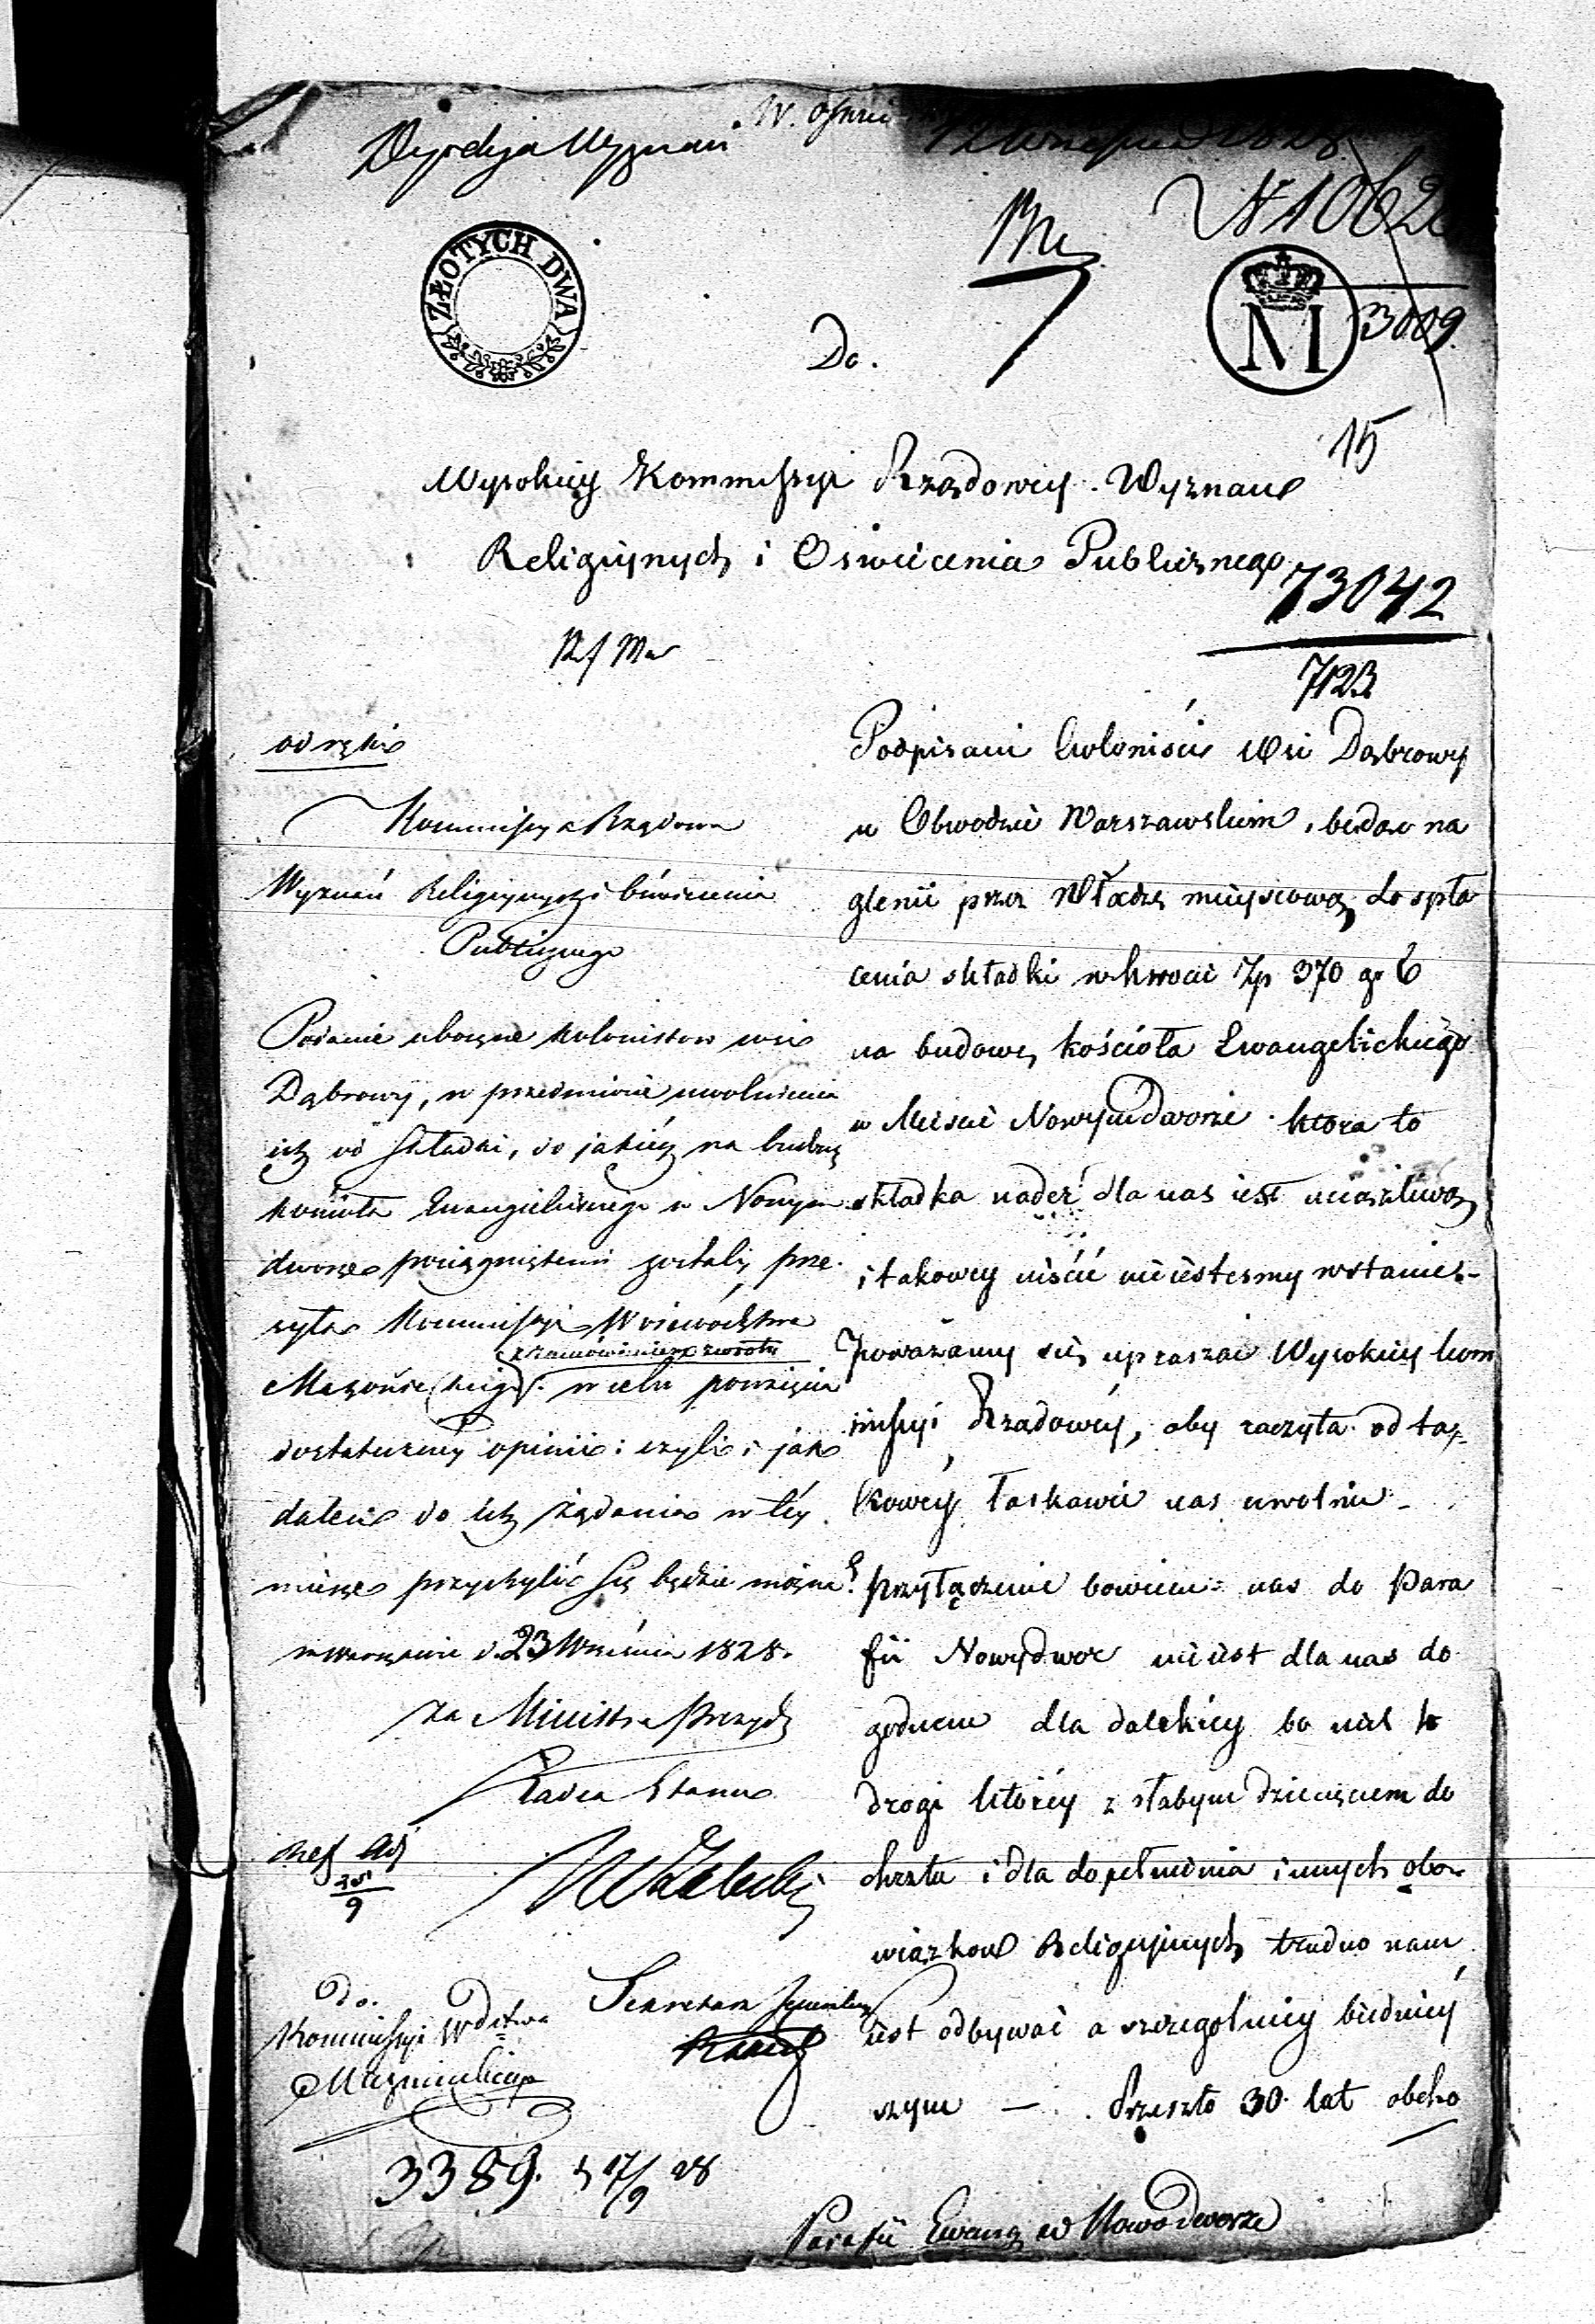 Dyrekcya Wyznań
12 Września 1828
N 1062
3009
ZŁOTYCH DWA
M
Do.
15
Wysokiey Kommissyi Rządowey Wyznań
Religijnych i Oświecenia Publicznego
73042
7123
od ręki
Kommissya Rządowa
Wyznań Religijnych i Oświecenia
Publicznego
Podanie uboczne kolonistów wsi
Dąbrowy, w przedmiocie uwolnienia
ich od składki, do jakiéy na budowę
kościoła Ewangielickiego w Nowym
dworze pociągnięteni zostali, prze
syła Kommissyi Województwa
z zamówieniem zwrotu
Mazowieckiego w celu powzięcia
dostateczney opinii: czyli i jak
dalece do ich żądania w téy
mierze przychylić się będzie można?
w Warszawie d. 23 Września 1828.
za Ministra Prezyd
Radca Stanu
Ref
9
Sekretarz Jeneralny
Do.
Kommissyi Wdztwa
Mazowieckiego
3389. 17/9 28
Podpisani Coloniści Wsi Dąbrowy
w Obwodzie Warszawskim, będąc na
glenii przez Władzę mieyscową do spła
cenia składki w kwocie Zp 370 gr 6
na budowę kościoła Ewangelickiego
w Mieście Nowymdworze która to
składka nader dla nas iest uciążliwą
i takowey uiścić nie iesteśmy wstanie.-
Poważamy się upraszać Wysokiey Kom
missyi Rządowéy, aby raczyła od ta-
kowéy łaskawie nas uwolnić -
przyłączenie bowiem nas do Para
fii Nowydwor nie iest dla nas do
godnem dla dalekiey bo mil
drogi którey z słabym dziecięciem do
chrztu i dla dopełnienia innych obo
wiązkow Religijnych trudno nam
iest odbywać a szczególniey biednieÿ
szym — Przeszło 30 lat obcho
Parafii Ewang w Nowodworze